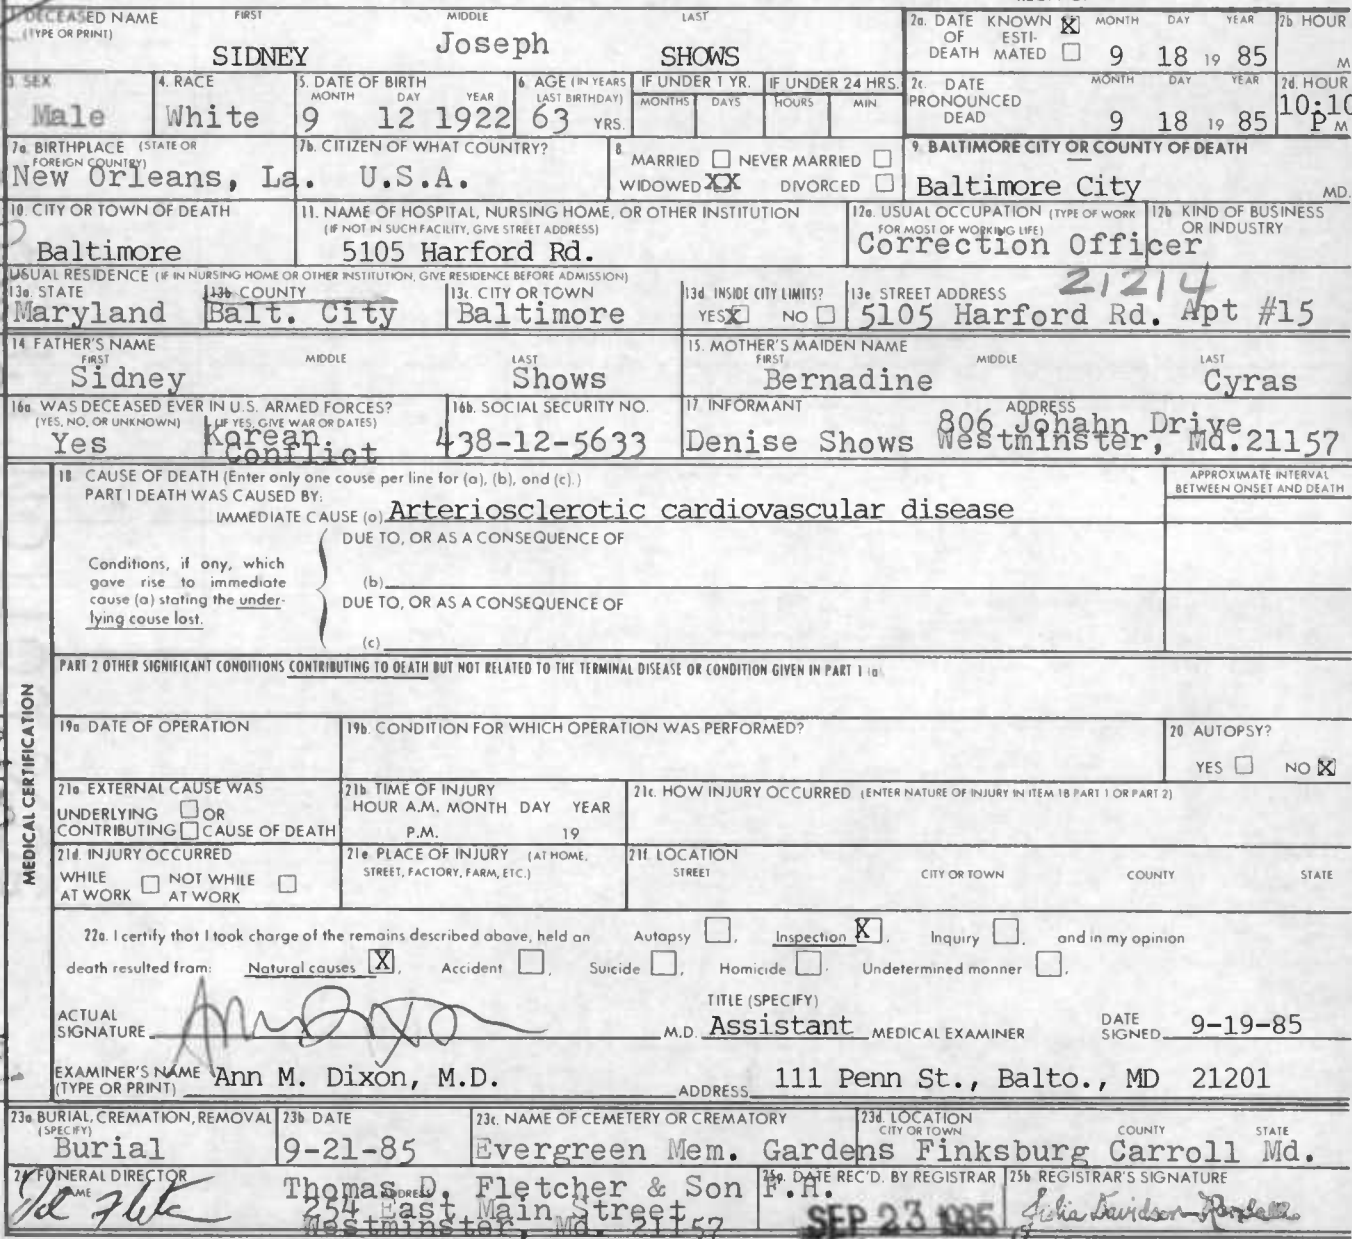 DECEASED NAME FIRST MIDDLE LAST
(TYPE OR PRINT)
SIDNEY Joseph SHOWS
2a. DATE OF DEATH KNOWN X ESTIMATED MONTH DAY YEAR
9 18 19 85
2b. HOUR
M
3. SEX
Male
4. RACE
White
5. DATE OF BIRTH
MONTH DAY YEAR
9 12 1922
6. AGE (IN YEARS LAST BIRTHDAY)
63 YRS.
IF UNDER 1 YR.
MONTHS DAYS
IF UNDER 24 HRS.
HOURS MIN.
2c. DATE PRONOUNCED DEAD MONTH DAY YEAR
9 18 19 85
2d. HOUR
10:10
P M
7a. BIRTHPLACE (STATE OR FOREIGN COUNTRY)
New Orleans, La.
7b. CITIZEN OF WHAT COUNTRY?
U.S.A.
8. MARRIED NEVER MARRIED
WIDOWED XX DIVORCED
9. BALTIMORE CITY OR COUNTY OF DEATH
Baltimore City MD.
10. CITY OR TOWN OF DEATH
Baltimore
11. NAME OF HOSPITAL, NURSING HOME, OR OTHER INSTITUTION
(IF NOT IN SUCH FACILITY, GIVE STREET ADDRESS)
5105 Harford Rd.
12a. USUAL OCCUPATION (TYPE OF WORK FOR MOST OF WORKING LIFE)
Correction Officer
12b. KIND OF BUSINESS OR INDUSTRY
USUAL RESIDENCE (IF IN NURSING HOME OR OTHER INSTITUTION, GIVE RESIDENCE BEFORE ADMISSION)
13a. STATE
Maryland
13b. COUNTY
Balt. City
13c. CITY OR TOWN
Baltimore
13d. INSIDE CITY LIMITS?
YES X NO
13e. STREET ADDRESS 21214
5105 Harford Rd. Apt #15
14. FATHER'S NAME
FIRST MIDDLE LAST
Sidney Shows
15. MOTHER'S MAIDEN NAME
FIRST MIDDLE LAST
Bernadine Cyras
16a. WAS DECEASED EVER IN U.S. ARMED FORCES?
(YES, NO, OR UNKNOWN) (IF YES, GIVE WAR OR DATES)
Yes Korean Conflict
16b. SOCIAL SECURITY NO.
438-12-5633
17. INFORMANT ADDRESS
Denise Shows 806 Johahn Drive
Westminster, Md.21157
MEDICAL CERTIFICATION
18 CAUSE OF DEATH (Enter only one cause per line for (a), (b), and (c).)
PART I DEATH WAS CAUSED BY:
IMMEDIATE CAUSE (a) Arteriosclerotic cardiovascular disease
APPROXIMATE INTERVAL BETWEEN ONSET AND DEATH
DUE TO, OR AS A CONSEQUENCE OF
Conditions, if any, which gave rise to immediate cause (a) stating the underlying cause last.
(b)
DUE TO, OR AS A CONSEQUENCE OF
(c)
PART 2 OTHER SIGNIFICANT CONDITIONS CONTRIBUTING TO DEATH BUT NOT RELATED TO THE TERMINAL DISEASE OR CONDITION GIVEN IN PART 1 (a)
19a. DATE OF OPERATION
19b. CONDITION FOR WHICH OPERATION WAS PERFORMED?
20. AUTOPSY?
YES NO X
21a. EXTERNAL CAUSE WAS
UNDERLYING OR
CONTRIBUTING CAUSE OF DEATH
21b. TIME OF INJURY
HOUR A.M. MONTH DAY YEAR
P.M. 19
21c. HOW INJURY OCCURRED (ENTER NATURE OF INJURY IN ITEM 18 PART 1 OR PART 2)
21d. INJURY OCCURRED
WHILE AT WORK NOT WHILE AT WORK
21e. PLACE OF INJURY (AT HOME, STREET, FACTORY, FARM, ETC.)
21f. LOCATION
STREET CITY OR TOWN COUNTY STATE
22a. I certify that I took charge of the remains described above, held an Autopsy , Inspection X , Inquiry , and in my opinion
death resulted from: Natural causes X , Accident , Suicide , Homicide . Undetermined manner .
ACTUAL SIGNATURE Ann Dixon M.D.
TITLE (SPECIFY)
Assistant MEDICAL EXAMINER
DATE SIGNED 9-19-85
EXAMINER'S NAME (TYPE OR PRINT) Ann M. Dixon, M.D.
ADDRESS 111 Penn St., Balto., MD 21201
23a. BURIAL, CREMATION, REMOVAL (SPECIFY)
Burial
23b. DATE
9-21-85
23c. NAME OF CEMETERY OR CREMATORY
Evergreen Mem. Gardens
23d. LOCATION
CITY OR TOWN COUNTY STATE
Finksburg Carroll Md.
24. FUNERAL DIRECTOR
NAME ADDRESS
Thomas D. Fletcher & Son F.H.
254 East Main Street
Westminster, Md. 21157
25a. DATE REC'D. BY REGISTRAR
SEP 23 1985
25b. REGISTRAR'S SIGNATURE
Julia Davidson-Randall